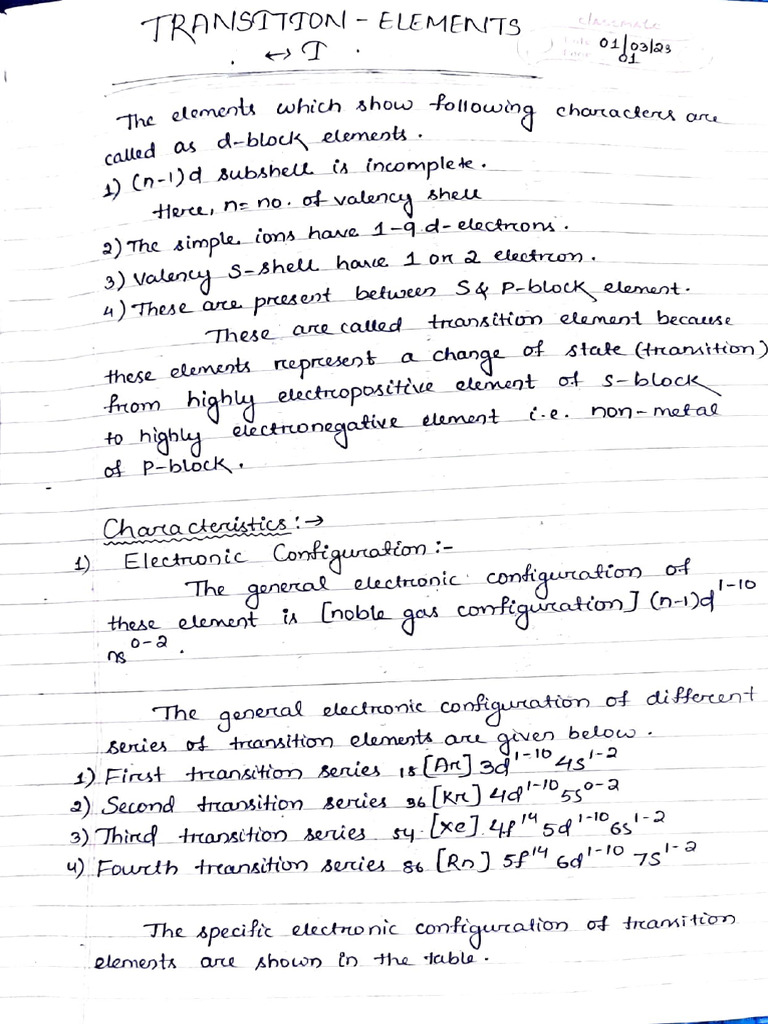 TRANSITION - ELEMENTS
classmate
01/03/23
01
↔ I
The elements which show following characters are
called as d-block elements.
1) (n-1)d subshell is incomplete.
Here, n= no. of valency shell
2) The simple ions have 1-9 d-electrons.
3) Valency S-shell have 1 or 2 electron.
4) These are present between S & P-block element.
These are called transition element because
these elements represent a change of state (transition)
from highly electropositive element of s-block
to highly electronegative element i.e. non-metal
of P-block.
Characteristics:→
1) Electronic Configuration:-
The general electronic configuration of
these element is [noble gas configuration] (n-1)d¹⁻¹⁰
ns⁰⁻².
The general electronic configuration of different
series of transition elements are given below.
1) First transition series ₁₈[Ar] 3d¹⁻¹⁰ 4s¹⁻²
2) Second transition series ₃₆[Kr] 4d¹⁻¹⁰ 5s⁰⁻²
3) Third transition series ₅₄[Xe] 4f¹⁴ 5d¹⁻¹⁰ 6s¹⁻²
4) Fourth transition series ₈₆[Rn] 5f¹⁴ 6d¹⁻¹⁰ 7s¹⁻²
The specific electronic configuration of transition
elements are shown in the table.